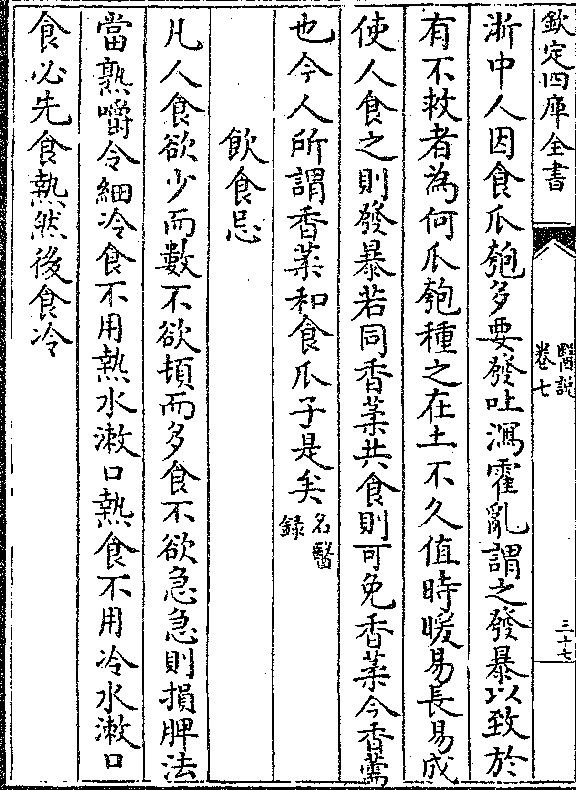 欽定四庫全書
醫說
卷七
三十七
浙中人因食瓜匏多要發吐瀉霍亂謂之發暴以致於
有不救者為何瓜匏種之在土不久值時暖易長易成
使人食之則發暴若同香葇共食則可免香葇今香薷
也今人所謂香葇和食瓜子是矣名醫
錄
飲食忌
凡人食欲少而數不欲頓而多食不欲急急則損脾法
當熟嚼令細冷食不用熱水漱口熱食不用冷水漱口
食必先食熱然後食冷